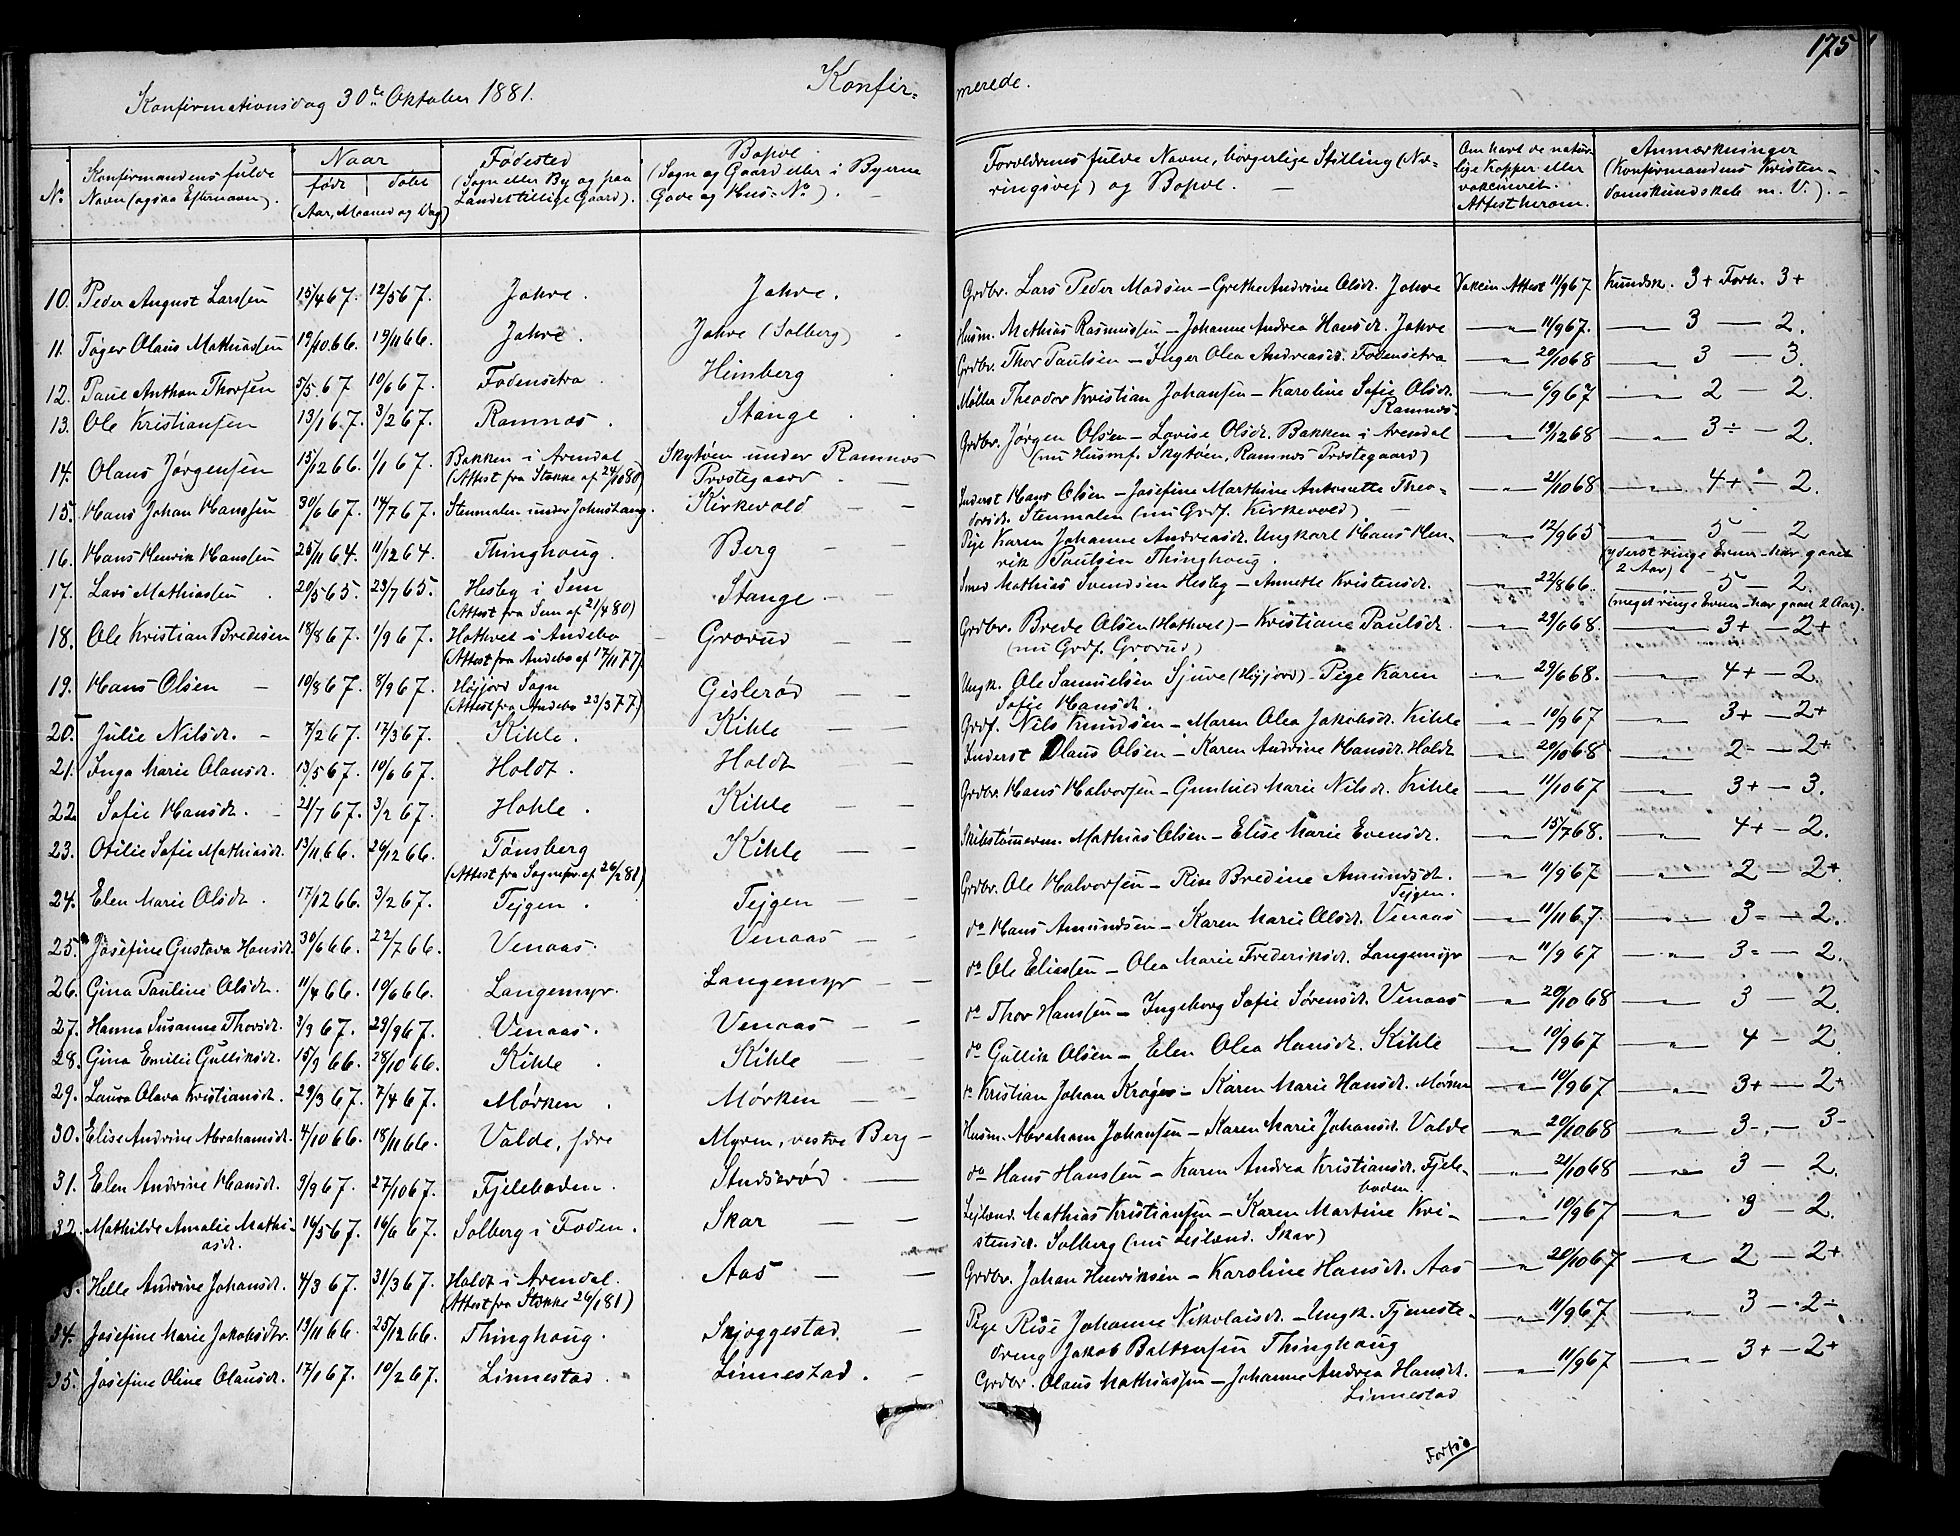 175
Konfirmationsdag 30te Oktober 1881.
Konfir-merede.
No.
Konfirmandens fulde Navn (ogsaa Efternavn).
Naar
født | døbt
(Aar, Maaned og Dag)
Fødested (Sogn eller By og paa Landet tillige Gaard).
Bopæl. (Sogn og Gaard eller i Byerne Gade og Hus-No).
Forældrenes fulde Navne, borgerlige Stilling (Næringsvej) og Bopæl.
Om havt de naturlige Kopper eller vakcineret. Attest herom.
Anmærkninger (Konfirmandens Kristendomskundskab m. V.).
10. Peder August Larssen 15/4 67. 12/5 67. Jahre. Jahre. Grdbr. Lars Peder Madsen – Grethe Andrine Olsdt. Jahre Vakcin Attest 11/9 67 Kundsk. 3+ Forh. 3+
11. Tøger Olaus Mathiassen 19/10 66. 19/11 66. Jahre. Jahre (Solberg) Husm. Mathias Rasmussen – Johanne Andrea Hansdt. Jahre – " – 11/9 67. – " – 3 – 2.
12. Paul Anthon Thorsen 5/5 67. 10/6 67. Fodensetra. Heimberg Grdbr. Thor Paulsen – Inger Olea Andreasdt. Fodensetra – " – 20/10 68 – " – 3 – 3.
13. Ole Kristiansen 13/1 67. 3/2 67. Ramnæs. Stange Møller Theodor Kristian Johansen – Karoline Sofie Olsdt. Ramnæs. – " – 6/9 67 – " – 2 – 2.
14. Olaus Jørgensen 15/12 66. 1/1 67. Bakken i Arendal (Attest fra Stokke af 24/10 80) Skytøen under Ramnæs Præstegaard. Grdbr. Jørgen Olsen – Lovise Olsdt. Bakken i Arendal (nu Husmf. Skytøen, Ramnæs Præstegaard) – " – 19/12 68 – " – 3÷ – 2.
15. Hans Johan Hanssen 30/6 67. 14/7 67. Stenmalen under Johnshaug. Kirkevold Inderst Hans Olsen – Josefine Marthine Antonette Theodorsdt. Stenmalen (nu Grdf. Kirkevold) – " – 21/10 68 – " – 4+ – 2.
16. Hans Henrik Hanssen 25/11 64. 11/12 64. Thinghoug. Berg Pige Karen Johanne Andreasdt. Ungkarl Hans Henrik Paulsen Thinghoug. – " – 12/9 65 – " – 5 – 2 (yderst ringe Evner – har gaaet 2 Aar)
17. Lars Mathiassen 20/5 65. 23/7 65. Hesby i Sem (Attest fra Sem af 21/4 80) Stange Smed Mathias Svendsen Hesby – Annette Kristensdt. – " – 22/8 66. – " – 5 – 2. (meget ringe Evner – har gaaet 2 Aar).
18. Ole Kristian Bredesen 18/8 67. 1/9 67. Hothvet i Andebo (Attest fra Andebo af 17/11 77) Grorud Grdbr. Brede Olsen (Hothvet) – Kristiane Paulsdt. (nu Grdf. Grorud) – " – 29/6 68. – " – 3+ – 2+
19. Hans Olsen 10/8 67. 8/9 67. Høijord Sogn (Attest fra Andebo 23/3 77) Gislerød Ungk. Ole Samuelsen Sjuve (Høijord) – Pige Karen Sofie Hansdt. – " – 29/6 68. – " – 4+ – 2.
20. Julie Nilsdt. 7/2 67. 17/3 67. Kihle. Kihle Grdf. Nils Knudsen – Maren Olea Jakobsdt. Kihle – " – 10/9 67 – " – 3+ – 2+
21. Inga Marie Olausdt. 13/5 67. 10/6 67. Holdt. Holdt Inderst Olaus Olsen – Karen Andrine Hansdt. Holdt – " – 20/10 68 – " – 2- – 2+
22. Sofie Hansdt. 21/7 67. 3/2 67. Hohle. Kihle Grdbr. Hans Halvorsen – Gunhild Marie Nilsdt. Kihle – " – 11/10 67 – " – 3+ – 3.
23. Otilie Sofie Mathiasdt. 13/11 66. 29/12 66. Tønsberg (Attest fra Sognepr. af 26/2 81) Kihle Skibstømerm. Mathias Olsen – Elise Marie Evensdt. – " – 15/7 68. – " – 4+ – 2.
24. Elen Marie Olsdt. 17/12 66. 3/2 67. Tejgen. Tejgen Grdbr. Ole Halvorsen – Rise Bredine Amundsdt. Tejgen. – " – 11/9 67 – " – 2 – 2+
25. Josefine Gustava Hansdt. 30/6 66. 22/7 66. Venaas. Venaas do Hans Amundsen – Karen Marie Olsdt. Venaas – " – 11/11 67. – " – 3- – 2.
26. Gina Pauline Olsdt. 11/4 66. 10/6 66. Langemyr. Langemyr do Ole Eliassen – Olea Marie Frederiksdt. Langemyr – " – 11/9 67 – " – 3- – 2.
27. Hanna Susanne Thorsdt. 3/9 67. 29/9 67. Venaas. Venaas do Thor Hanssen – Ingeborg Sofie Sørensdt. Venaas – " – 20/10 68 – " – 3 – 2.
28. Gina Emilie Gulliksdt. 15/9 66. 28/10 66. Kihle. Kihle do Gullik Olsen – Elen Olea Hansdt. Kihle – " – 10/9 67 – " – 4 – 2
29. Laura Olava Kristiansdt. 29/3 67. 7/4 67. Mørken. Mørken do Kristian Johan Krøger – Karen Marie Hansdt. Mørken – " – 10/9 67 – " – 3+ – 2+
30. Elise Andrine Abrahamsdt. 4/10 66. 18/11 66. Valde, søre Myren, vestre Berg Husm. Abraham Johansen – Karen Marie Johansdt. Valde – " – 20/10 68 – " – 3- – 3-
31. Elen Andrine Hansdt. 9/9 67. 27/10 67. Fjeleboden. Studserød. do Hans Hanssen – Karen Andrea Kristiansdt. Fjeleboden. – " – 21/10 68 – " – 3 – 2.
32. Mathilde Amalie Mathiasdt. 16/5 67. 16/6 67. Solberg i Foden. Skar Lejlænd. Mathias Kristiansen – Karen Martine Kristensdt. Solberg (nu Lejlænd. Skar) – " – 10/9 67 – " – 3 – 2.
3. Helle Andrine Johansdt. 4/3 67. 31/3 67. Holdt i Arendal. (Attest fra Stokke 26/1 81) Aas Grdbr. Johan Henriksen – Karoline Hansdt. Aas – " – 20/10 67 – " – 2 – 2+
34. Josefine Marie Jakobsdtr. 19/11 66. 25/12 66. Thinghoug. Skjeggestad. Pige Rise Johanne Nikolaisdt. – Ungk. Tjenestedreng Jakob Baltersen Thinghoug – " – 11/9 67 – " – 3 – 2÷
35. Josefine Oline Olausdt. 17/1 67. 10/2 67. Linnestad. Linnestad. Grdbr. Olaus Mathiassen – Johanne Andrea Hansdt. Linnestad – " – 11/9 67 – " – 3+ – 2+
Forts.